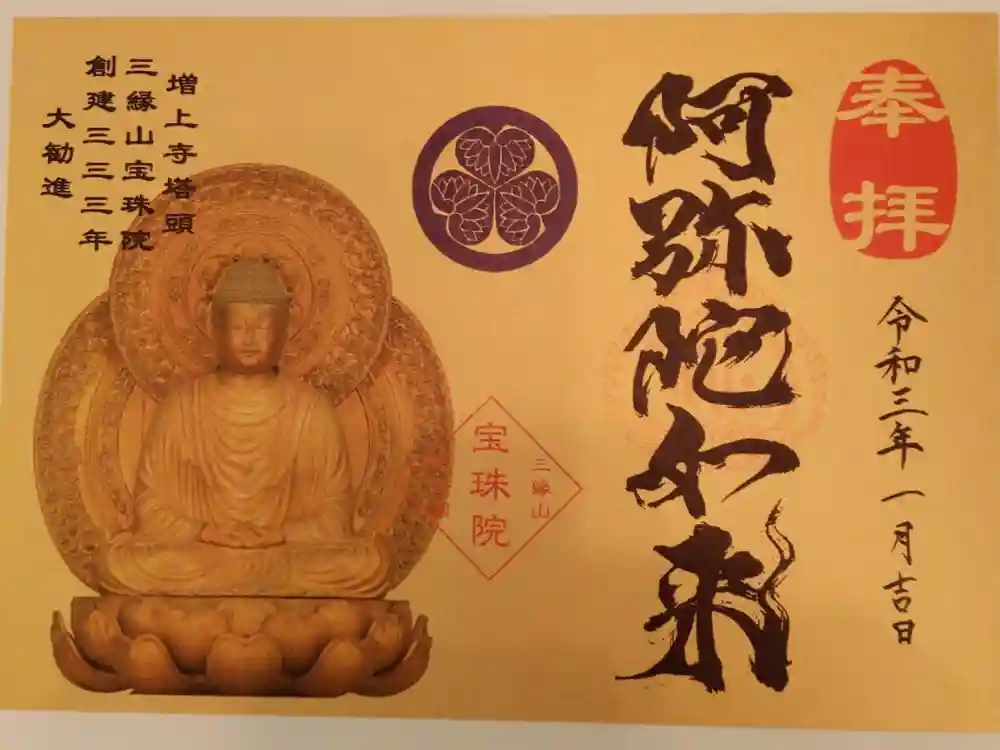 奉拝
令和三年一月吉日
阿弥陀如来
三縁山
宝珠院
増上寺塔頭
三縁山宝珠院
創建三三三年
大勧進